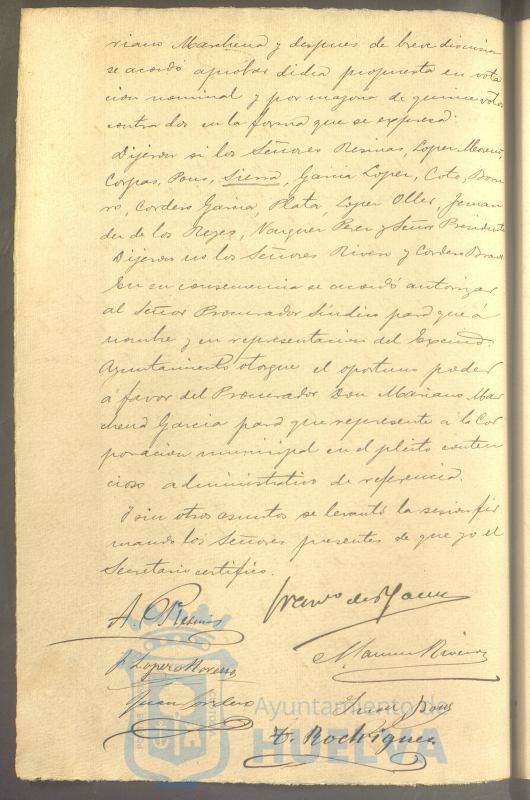 riano Marchena y despues de breve discusion
se acordó aprobar dicha propuesta en vota
cion nominal y por mayoria de quince votos
contra dos en la forma que se expresa.
Dijeron si los Señores Resinas, Lopez Moreno,
Corpas, Pons, Sierra, Garcia Lopez, Coto, Borre
ro, Cordero Garcia, Plata, Lopez Oller, Fernan
dez de los Reyes, Vazquez Perez y Señor Presidente
Dijeron no los Señores Rivero y Cordero Bravo
En su consecuencia se acordó autorizar
al Señor Procurador Síndico para que á
nombre y en representacion del Excmo.
Ayuntamiento otorgue el oportuno poder
á favor del Procurador Don Mariano Mar
chena Garcia para que represente á la Cor
poracion municipal en el pleito conten
cioso administrativo de referencia.
Y sin otros asuntos se levantó la sesion fir
mando los Señores presentes de que yo el
Secretario certifico.
A. Resinas
J. Lopez Moreno
Manuel Rivero
Juan Cordero
Juan Pons
T. Rodriguez
Ayuntamiento de
HUELVA